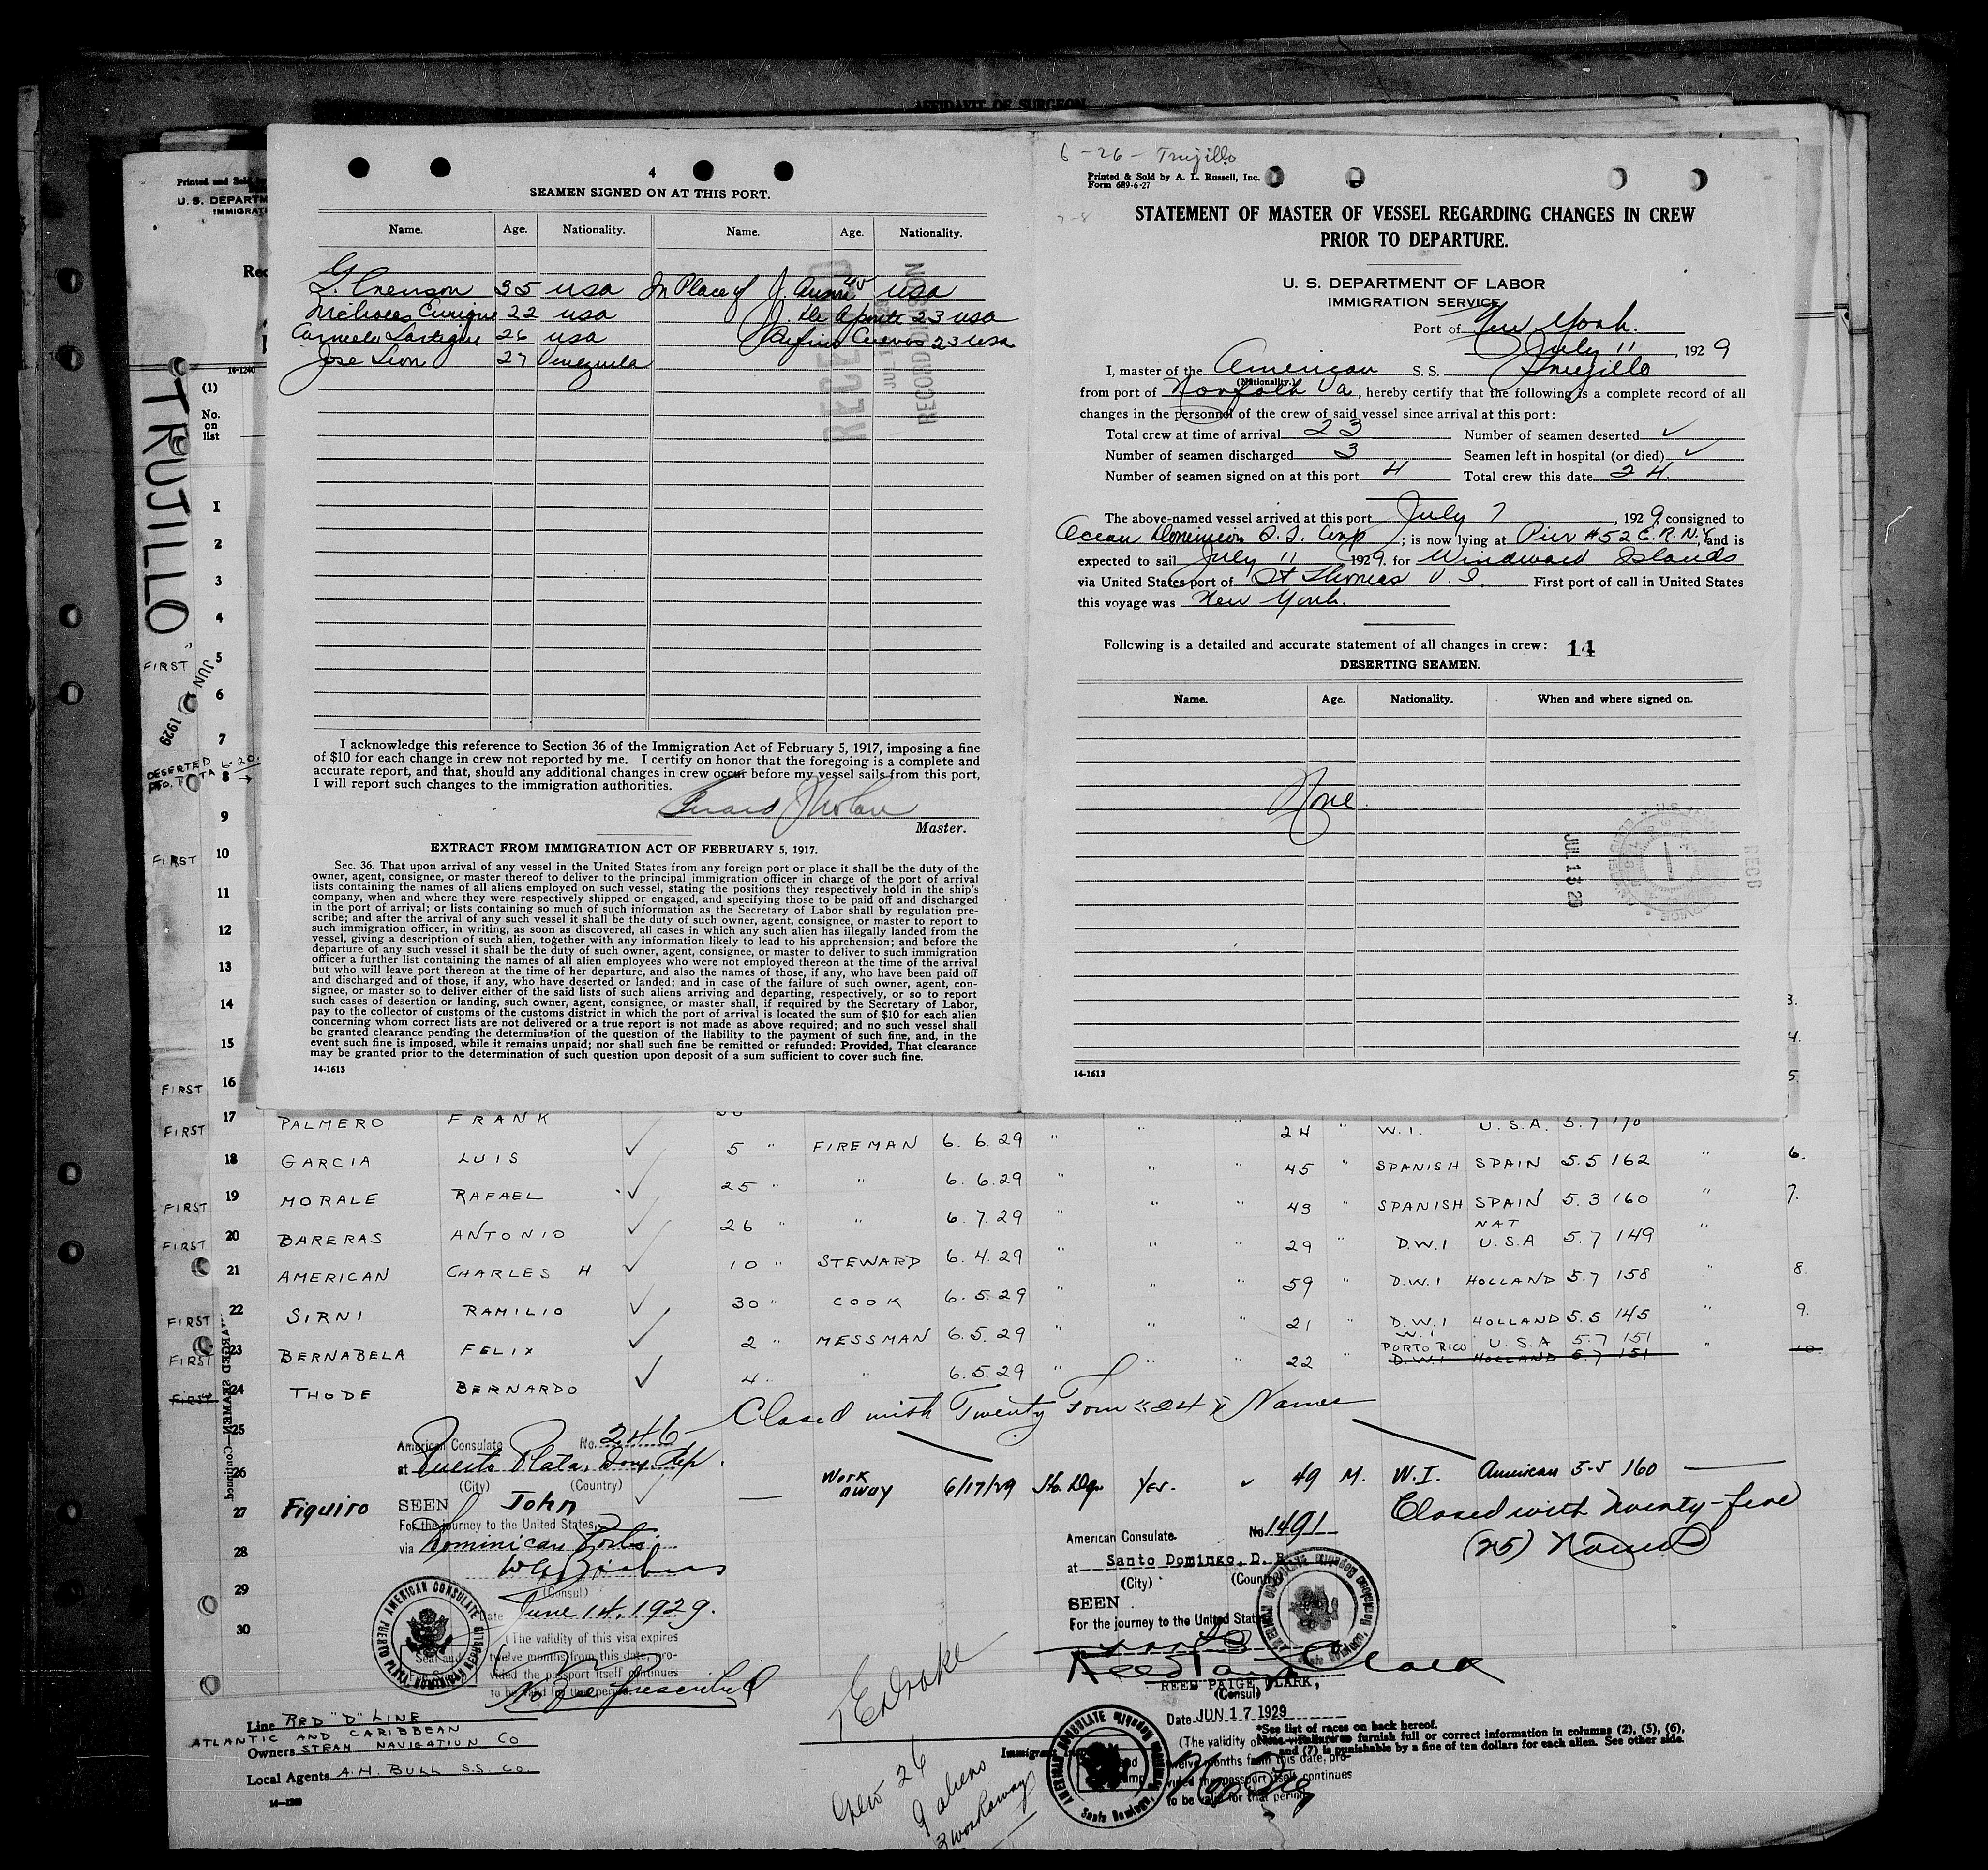 AFFIDAVIT OF SURGEON
Printed and Sold by
U. S. DEPARTM
IMMIGRATI
14-1240
(1)
No.
on
list
TRUJILLO
FIRST
JUN
1929
DESERTED 6-20.
4
SEAMEN SIGNED ON AT THIS PORT.
Name. Age. Nationality. Name. Age. Nationality.
35 usa In Place of J. usa
Nicholas Enrique 22 usa J. De Aponte 23 usa
Carmelo Lartigue 26 usa Rufino Cuevas 23 usa
Jose Leon 27 Venezuela
RECEIVED
RECORD DIVISION
I acknowledge this reference to Section 36 of the Immigration Act of February 5, 1917, imposing a fine
of $10 for each change in crew not reported by me. I certify on honor that the foregoing is a complete and
accurate report, and that, should any additional changes in crew occur before my vessel sails from this port,
I will report such changes to the immigration authorities.
Master.
EXTRACT FROM IMMIGRATION ACT OF FEBRUARY 5, 1917.
Sec. 36. That upon arrival of any vessel in the United States from any foreign port or place it shall be the duty of the
owner, agent, consignee, or master thereof to deliver to the principal immigration officer in charge of the port of arrival
lists containing the names of all aliens employed on such vessel, stating the positions they respectively hold in the ship's
company, when and where they were respectively shipped or engaged, and specifying those to be paid off and discharged
in the port of arrival; or lists containing so much of such information as the Secretary of Labor shall by regulation pre-
scribe; and after the arrival of any such vessel it shall be the duty of such owner, agent, consignee, or master to report to
such immigration officer, in writing, as soon as discovered, all cases in which any such alien has illegally landed from the
vessel, giving a description of such alien, together with any information likely to lead to his apprehension; and before the
departure of any such vessel it shall be the duty of such owner, agent, consignee, or master to deliver to such immigration
officer a further list containing the names of all alien employees who were not employed thereon at the time of the arrival
but who will leave port thereon at the time of her departure, and also the names of those, if any, who have been paid off
and discharged and of those, if any, who have deserted or landed; and in case of the failure of such owner, agent, con-
signee, or master so to deliver either of the said lists of such aliens arriving and departing, respectively, or so to report
such cases of desertion or landing, such owner, agent, consignee, or master shall, if required by the Secretary of Labor,
pay to the collector of customs of the customs district in which the port of arrival is located the sum of $10 for each alien
concerning whom correct lists are not delivered or a true report is not made as above required; and no such vessel shall
be granted clearance pending the determination of the question of the liability to the payment of such fine, and, in the
event such fine is imposed, while it remains unpaid; nor shall such fine be remitted or refunded: Provided, That clearance
may be granted prior to the determination of such question upon deposit of a sum sufficient to cover such fine.
14-1613
6-26-Trujillo
Printed & Sold by A. L. Russell, Inc.
Form 689-6-27
STATEMENT OF MASTER OF VESSEL REGARDING CHANGES IN CREW
PRIOR TO DEPARTURE.
U. S. DEPARTMENT OF LABOR
IMMIGRATION SERVICE
Port of New York.
July 11, 1929
I, master of the American S. S. Trujillo
(Nationality.)
from port of Norfolk Va, hereby certify that the following is a complete record of all
changes in the personnel of the crew of said vessel since arrival at this port:
Total crew at time of arrival 23 Number of seamen deserted ✓
Number of seamen discharged 3 Seamen left in hospital (or died) ✓
Number of seamen signed on at this port 4 Total crew this date 24.
The above-named vessel arrived at this port July 7, 1929, consigned to
Ocean Dominion S.S. Corp; is now lying at Pier #52 E.R.N.Y., and is
expected to sail July 11 1929. for Windward Islands
via United States port of St Thomas V.I. First port of call in United States
this voyage was New York.
Following is a detailed and accurate statement of all changes in crew: 14
DESERTING SEAMEN.
Name. Age. Nationality. When and where signed on.
None.
JUL 13 29
RECD
14-1613
FIRST 17 PALMERO FRANK 24 " W.I. U.S.A. 5.7 170
18 GARCIA LUIS ✓ 5 " FIREMAN 6.6.29 " " " 45 " SPANISH SPAIN 5.5 162 " 6.
FIRST 19 MORALE RAFAEL ✓ 25 " " 6.6.29 " " " 43 " SPANISH SPAIN 5.3 160 " 7.
FIRST 20 BARERAS ANTONIO ✓ 26 " " 6.7.29 " " " 29 " D.W.I NAT U.S.A 5.7 149 "
21 AMERICAN CHARLES H ✓ 10 " STEWARD 6.4.29 " " " 59 " D.W.I HOLLAND 5.7 158 " 8.
FIRST 22 SIRNI RAMILIO ✓ 30 " COOK 6.5.29 " " " 21 " D.W.I HOLLAND 5.5 145 " 9.
W.I
FIRST 23 BERNABELA FELIX ✓ 2 " MESSMAN 6.5.29 PORTO RICO U.S.A 5.7 151
FIRST 24 THODE BERNARDO ✓ 4 " " 6.5.29 " " " 22 " D.W.I HOLLAND 5.7 151 " 10.
25 Closed with Twenty Four "24" Names
American Consulate No. 246
at Puerto Plata, Dom. Rep.
(City) (Country)
26 Work away 6/17/29 Sto. Dgo. Yes. ✓ 49 M. W.I. American 5-5 160
27 Figuiro John ✓
SEEN
For the journey to the United States,
via Dominican Ports
(Consul)
Date June 14, 1929.
(The validity of this visa expires
twelve months from this date, pro-
vided the passport itself continues
to be valid for this period.
No Fee Prescribed
AMERICAN CONSULATE PUERTO PLATA, DOMINICAN REPUBLIC
Closed with Twenty-five
(25) Names
American Consulate. No 1491
at Santo Domingo, D. R.
(City) (Country)
SEEN
For the journey to the United States
Reed Paige Clark
REED PAIGE CLARK,
(Consul)
Date JUN 17 1929
(The validity of
twelve months from this date, pro-
vided the passport itself continues
to be valid for that period.
No Fee
28
29
30
Line RED "D" LINE
ATLANTIC AND CARIBBEAN
Owners STEAM NAVIGATION Co
Local Agents A.H. BULL S.S. Co.
Crew 26
9 aliens
*See list of races on back hereof.
furnish full or correct information in columns (2), (5), (6),
and (7) is punishable by a fine of ten dollars for each alien. See other side.